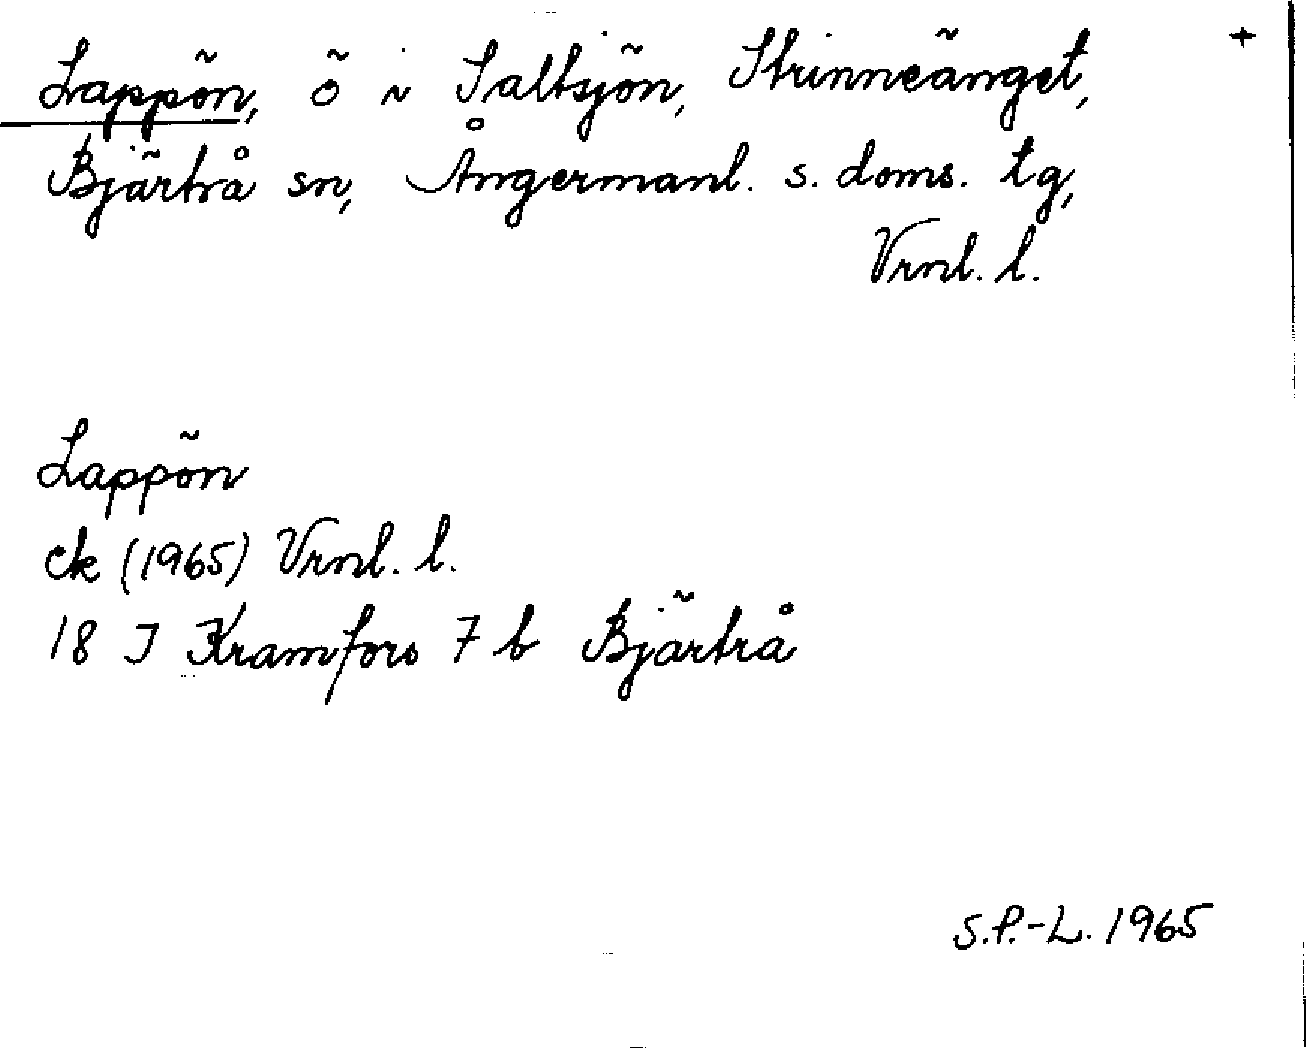 Lappön, ö i Saltsjön, Strinneänget, +
Bjärtrå sn, Ångermanl. s. doms. tg,
Vrnl. l.
Lappön
ek (1965) Vrnl. l.
18 I Kramfors 7 b Bjärtrå
S.P.-L. 1965